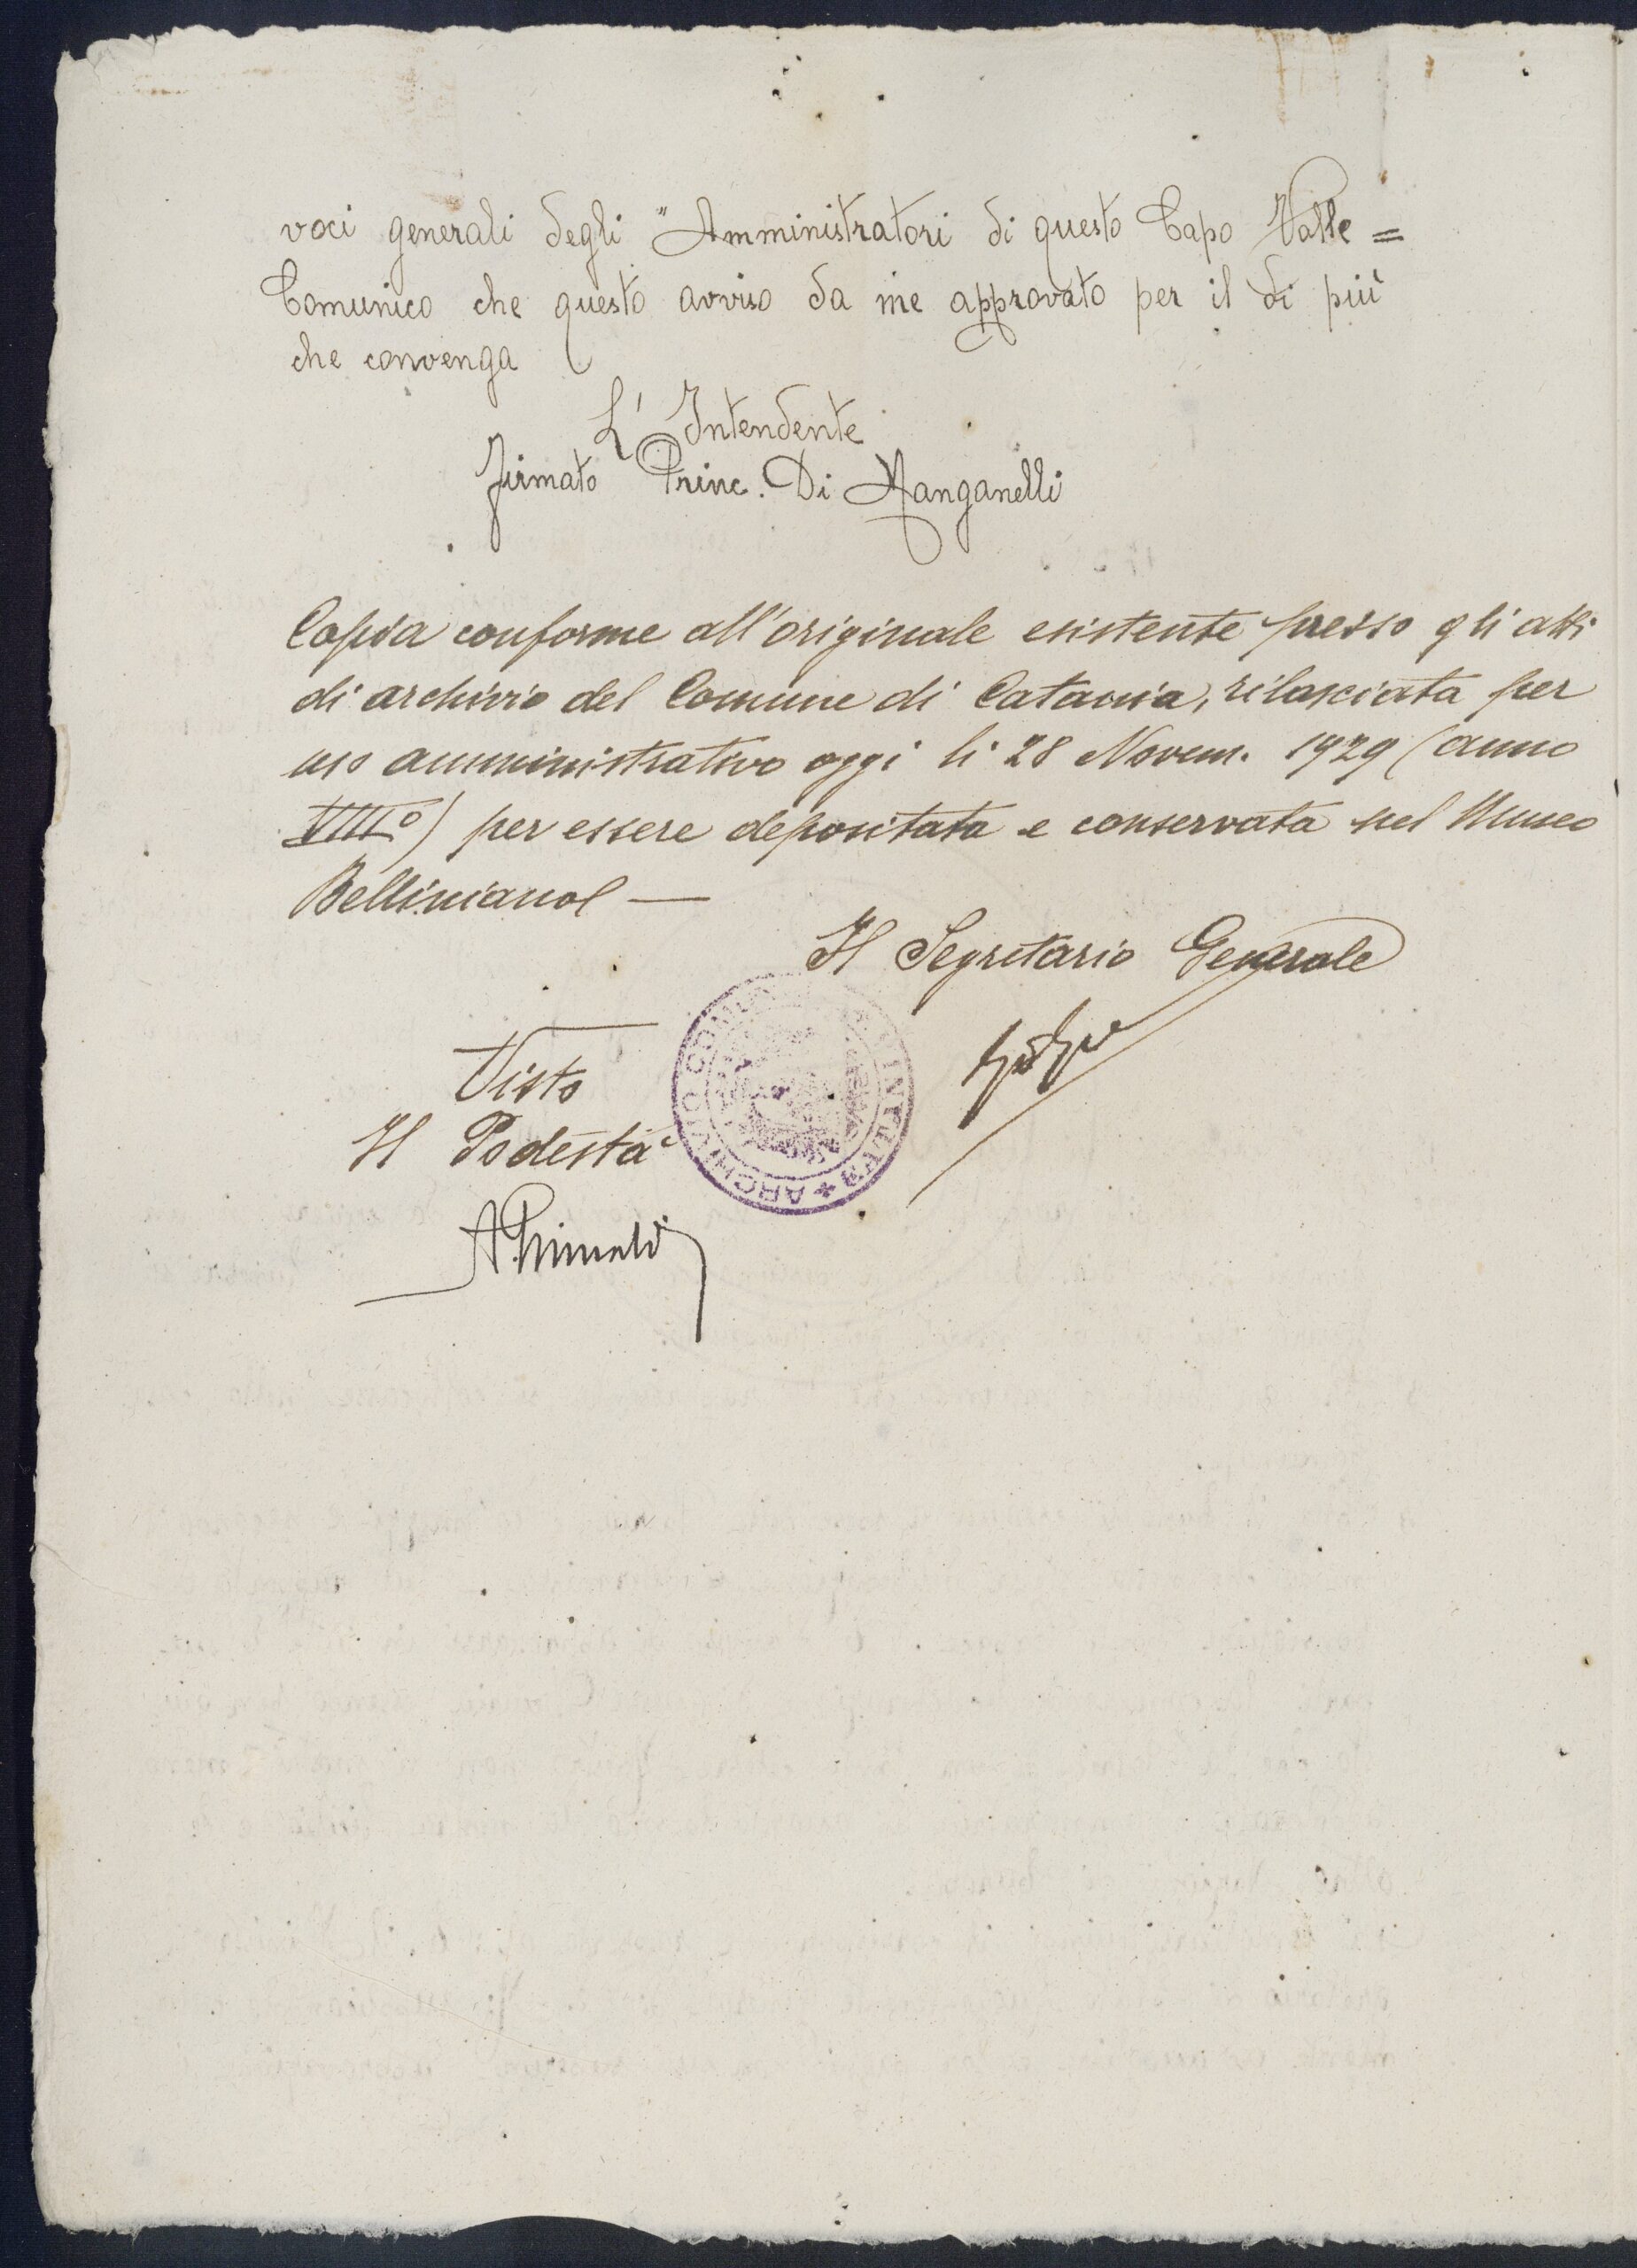 voci generali degli "Amministratori di questo Capo Valle =
Comunico che questo avviso da me approvato per il di più
che convenga
L' Intendente
firmato Princ. Di Manganelli
Copia conforme all'originale esistente presso gli atti
di archivio del Comune di Catania, rilasciata per
uso amministrativo oggi li 28 Novem. 1929 (anno
VIII°) per essere depositata e conservata nel Museo
Belliniano —
Il Segretario Generale
Visto
Il Podestà
ARCHIVIO COMU